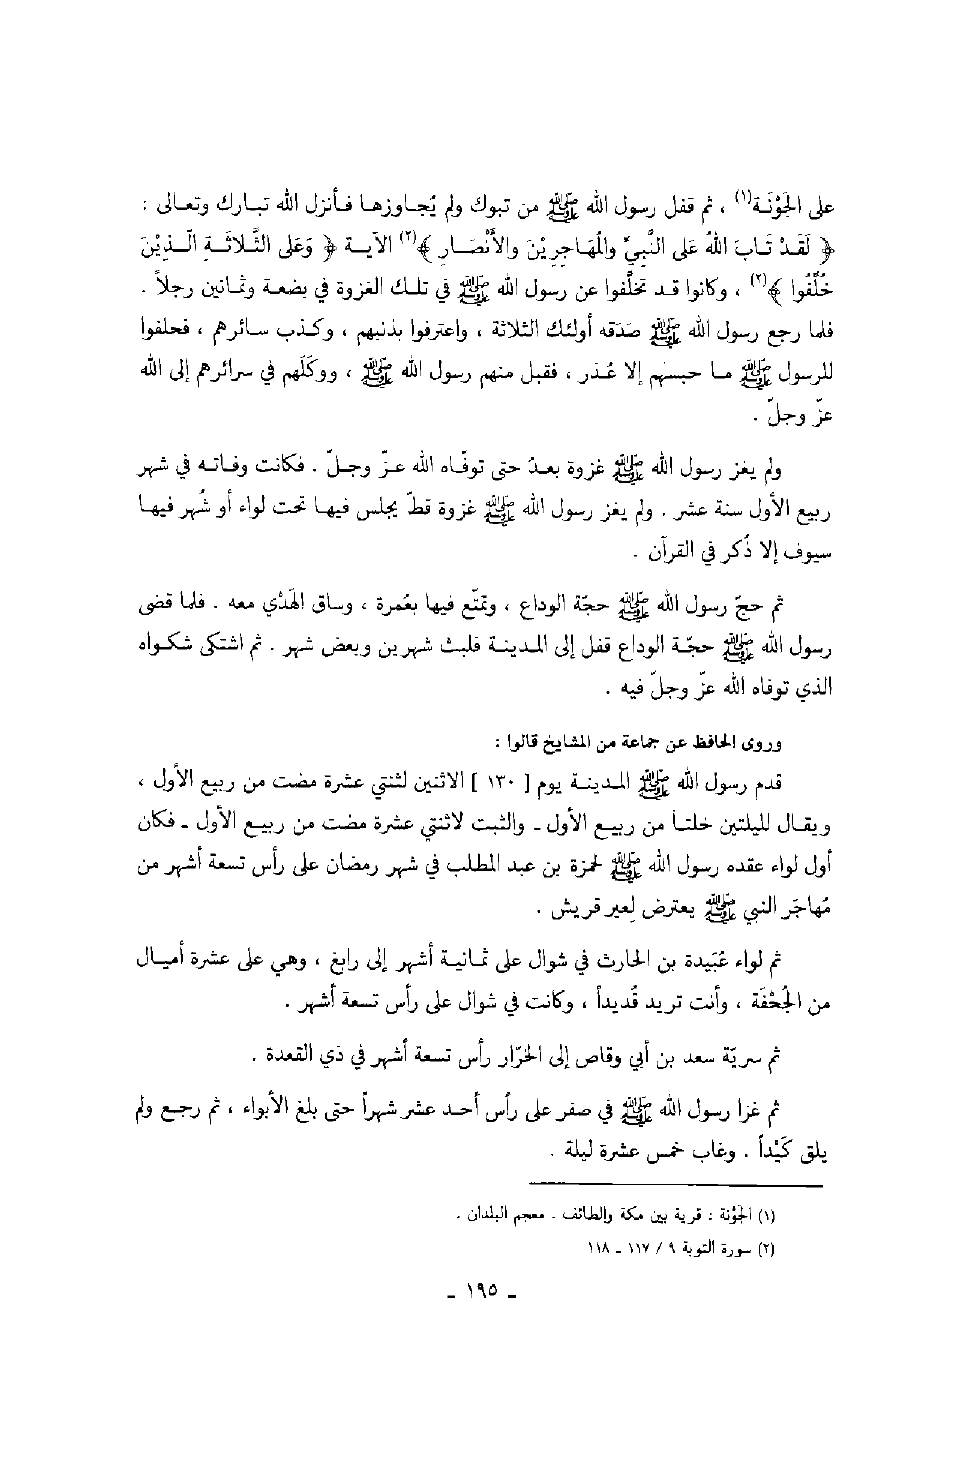 على الجَوْنَة(١) ، ثم قفل رسول الله ﷺ من تبوك ولم يُجاوزها فأنزل الله تبارك وتعالى :
﴿ لَقَدْ تَابَ اللهُ عَلى النَّبيِّ والمُهَاجِرِيْنَ والأَنْصَارِ ﴾(٢) الآية ﴿ وَعَلى الثَّلاثَةِ الَّذِيْنَ
خُلِّفُوا ﴾(٢) ، وكانوا قد تخلَّفوا عن رسول الله ﷺ في تلك الغزوة في بضعة وثمانين رجلاً .
فلما رجع رسول الله ﷺ صَدَقه أولئك الثلاثة ، واعترفوا بذنبهم ، وكذب سائرهم ، فحلفوا
للرسول ﷺ ما حبسهم إلا عُذر ، فقبل منهم رسول الله ﷺ ، ووكَلَهم في سرائرهم إلى الله
عزّ وجلّ .
ولم يغز رسول الله ﷺ غزوة بعدُ حتى توفّاه الله عزّ وجلّ . فكانت وفاته في شهر
ربيع الأول سنة عشر . ولم يغز رسول الله ﷺ غزوة قطّ يجلس فيها تحت لواء أو شُهر فيها
سيوف إلا ذُكر في القرآن .
ثم حجّ رسول الله ﷺ حجّة الوداع ، وتمتّع فيها بعُمرة ، وساق الهَدْي معه . فلما قضى
رسول الله ﷺ حجّة الوداع قفل إلى المدينة فلبث شهرين وبعض شهر . ثم اشتكى شكواه
الذي توفاه الله عزّ وجلّ فيه .
وروى الحافظ عن جماعة من المشايخ قالوا :
قدم رسول الله ﷺ المدينة يوم [ ١٣٠ ] الاثنين لثنتي عشرة مضت من ربيع الأول ،
ويقال لليلتين خلتا من ربيع الأول ـ والثبت لاثنتي عشرة مضت من ربيع الأول ـ فكان
أول لواء عقده رسول الله ﷺ لحمزة بن عبد المطلب في شهر رمضان على رأس تسعة أشهر من
مُهاجَر النبي ﷺ يعترض لِعير قريش .
ثم لواء عُبَيدة بن الحارث في شوال على ثمانية أشهر إلى رابغ ، وهي على عشرة أميال
من الجُحْفَة ، وأنت تريد قُديداً ، وكانت في شوال على رأس تسعة أشهر .
ثم سريّة سعد بن أبي وقاص إلى الخرّار رأس تسعة أشهر في ذي القعدة .
ثم غزا رسول الله ﷺ في صفر على رأس أحد عشر شهراً حتى بلغ الأبواء ، ثم رجع ولم
يلق كَيْداً . وغاب خمس عشرة ليلة .
(١) الجَوْنة : قرية بين مكة والطائف . معجم البلدان .
(٢) سورة التوبة ٩ / ١١٧ ـ ١١٨
ـ ١٩٥ ـ